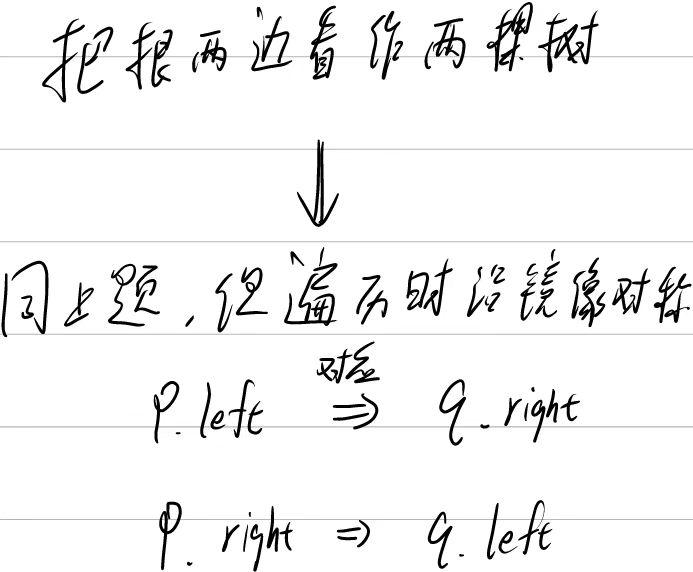 把根两边看作两棵树
↓
同上题,但遍历时沿镜像对称
对应
p.left ⇒ q.right
p.right ⇒ q.left